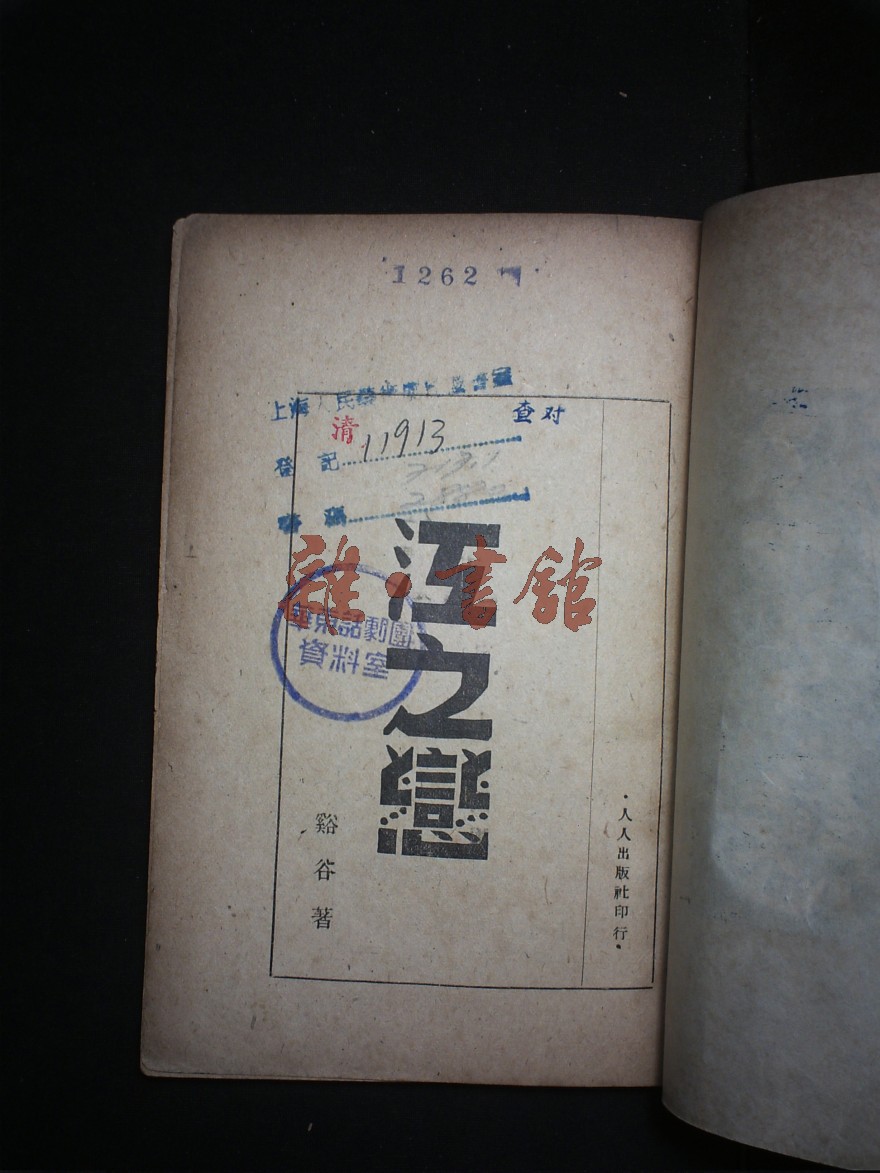 1262
上海人民藝術劇院圖書室
清
查对
登記 11913
江之戀
雜·書館
華東話劇團
資料室
谿谷著
·人人出版社印行·